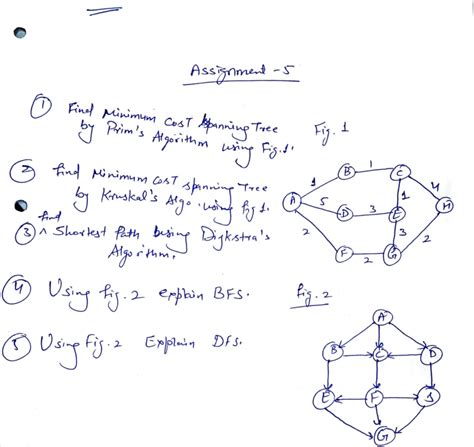 Assignment - 5
① Find Minimum Cost Spanning Tree
by Prim's Algorithm using Fig. 1.
Fig. 1
② find Minimum Cost spanning Tree
by Kruskal's Algo. using fig 1.
③ find Shortest Path using Digkstra's
Algorithm.
A
B
C
D
E
F
G
H
1
1
5
3
1
4
2
3
2
2
④ Using fig. 2 explain BFS.
fig. 2
⑤ Using Fig. 2 Explain Dfs.
A
B
C
D
E
F
G